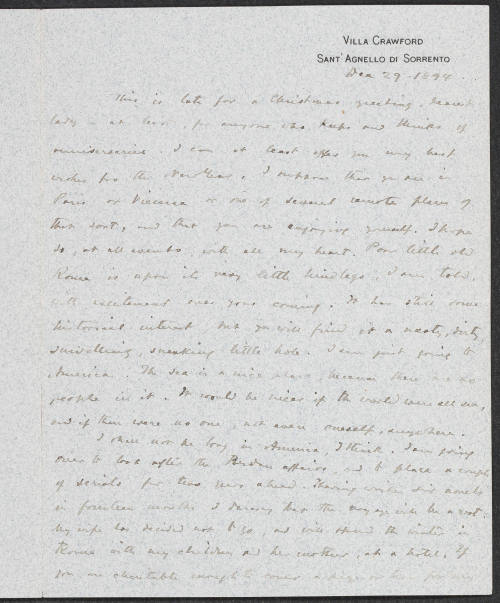 VILLA CRAWFORD
SANT' AGNELLO DI SORRENTO
Dec 29. 1894
This is late for a Christmas greeting, dearest
lady - at least, for anyone who keeps and thinks of
anniversaries. I can at least offer you my best
wishes for the New Year. I suppose that you are in
Paris or Vienna or one of several remote places of
that sort, and that you are enjoying yourself. I hope
so, at all events, with all my heart. Poor little old
Rome is upon its very little hindlegs, I am told,
with excitement over your coming. It has still some
historical interest, but you will find it a nasty, dirty,
smelling, sneaking little hole. I am just going to
America. The sea is a nice place, because there are no
people in it. It would be nicer if the world were all sea,
and if there were no one, not even oneself, anywhere.
I shall not be long in America, I think. I am going
over to look after the affairs, and to place a couple
of serials for two years ahead. Having written six novels
in fourteen months I daresay that the voyage will be a rest.
My wife has decided not to go, and will spend the winter in
Rome with my children and her mother, at a hotel. If
you are charitable enough to